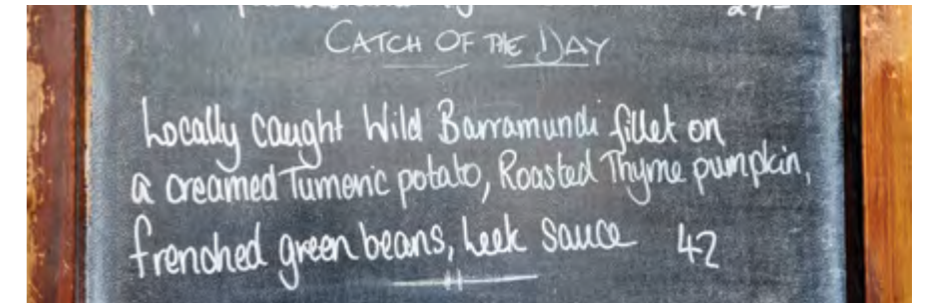 CATCH OF THE DAY
Locally caught Wild Barramundi fillet on
a creamed Tumeric potato, Roasted Thyme pumpkin,
frenched green beans, Leek sauce 42